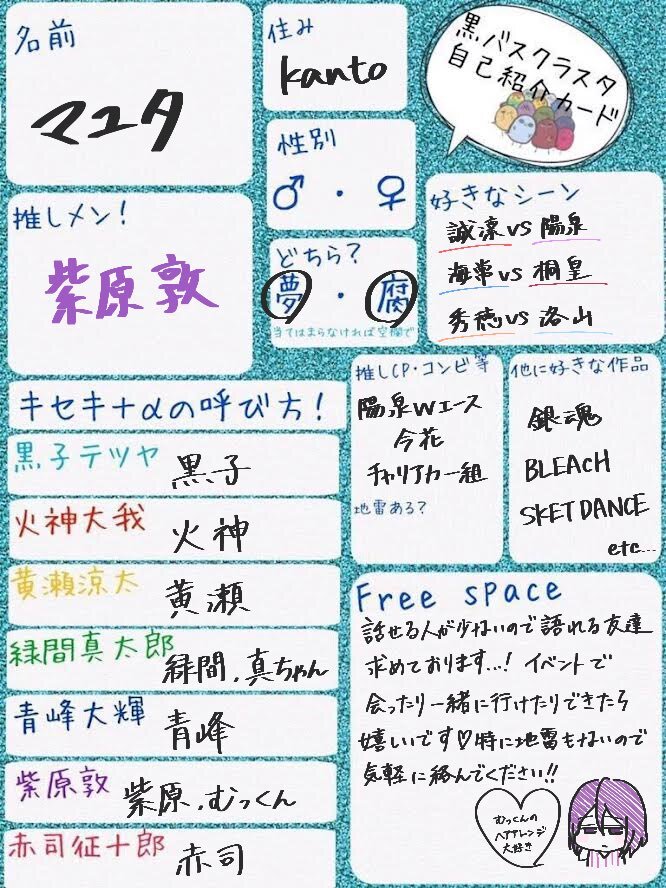 名前
マユタ
住み
kanto
黒バスクラスタ
自己紹介カード
性別
♂・♀
推しメン!
紫原敦
どちら?
夢・腐
当てはまらなければ空欄で
好きなシーン
誠凛vs陽泉
海常vs桐皇
秀徳vs洛山
キセキ+αの呼び方!
黒子テツヤ 黒子
火神大我 火神
黄瀬涼太 黄瀬
緑間真太郎 緑間、真ちゃん
青峰大輝 青峰
紫原敦 紫原、むっくん
赤司征十郎 赤司
推しCP・コンビ等
陽泉Wエース
今花
チャリアカー組
地雷ある?
他に好きな作品
銀魂
BLEACH
SKET DANCE
etc...
Free space
話せる人が少ないので語れる友達
求めております...! イベントで
会ったり一緒に行けたりできたら
嬉しいです♡特に地雷もないので
気軽に絡んでください!!
むっくんの
ヘアアレンジ
大好き